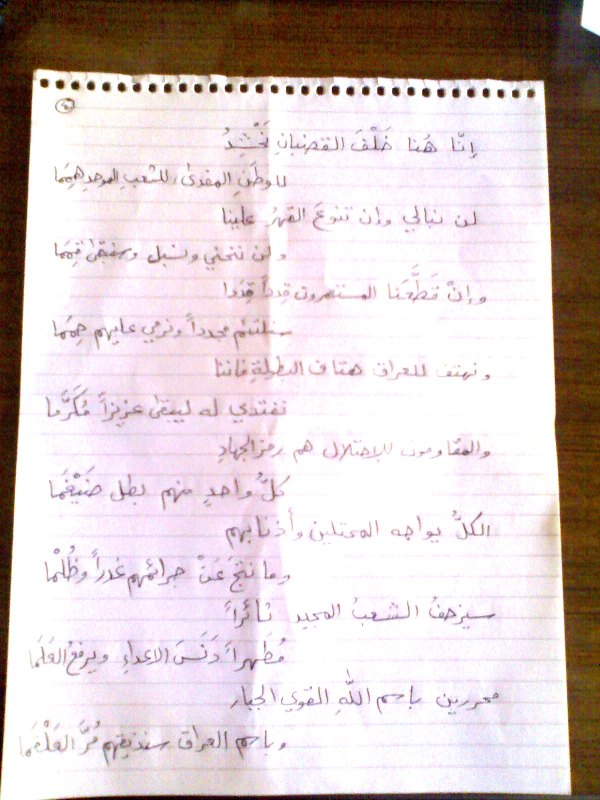 إنّا هُنا خَلْفَ القضبانِ نَحْشِدُ
للوطنِ المفدى، للشعبِ الموحدِ هِمَما
لن نبالي وإن تنوعَ القهرُ علينا
ولن ننحني ونذبل وسنبقى قِمَما
وإنْ قَطَّعَنا المستعمرون قِدداً قِدَدا
سنلتئم مجدداً ونرمي عليهم حِمَما
ونهتف للعراق هتاف البطولةِ فإننا
نفتدي له ليبقى عزيزاً مُكَرَّما
والمقاومون للإحتلال هم رمز الجهادِ
كلُّ واحدٍ منهم بطل ضَيْغَما
الكلُّ يواجه المحتلين وأذنابهم
وما نتجَ عَنْ جرائمهم غدراً وظُلْما
سيزحفُ الشعبُ المجيد ثائراً
مُطَهراً دَنَسَ الاعداءِ ويرفعُ العَلَما
محررين باسم اللّٰهِ القوي الجبار
وباسم العراق سنذيقهم مُرَّ العَلْقَما